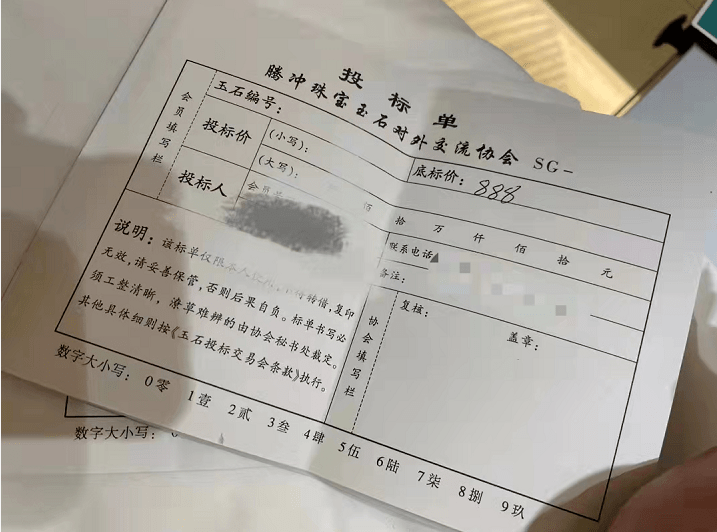 投标单
腾冲珠宝玉石对外交流协会 SG-
会员填写栏
玉石编号：
底标价：888
投标价
(小写)：
(大写)：
佰 拾 万 仟 佰 拾 元
投标人
会员
联系电话
备注：
说明：该标单仅限本人使用，不得转借，复印
无效，请妥善保管，否则后果自负。标单书写必
须工整清晰，潦草难辨的由协会秘书处裁定。
其他具体细则按《玉石投标交易会条款》执行。
协会填写栏
复核：
盖章：
数字大小写：0零 1壹 2贰 3叁 4肆 5伍 6陆 7柒 8捌 9玖
数字大小写：